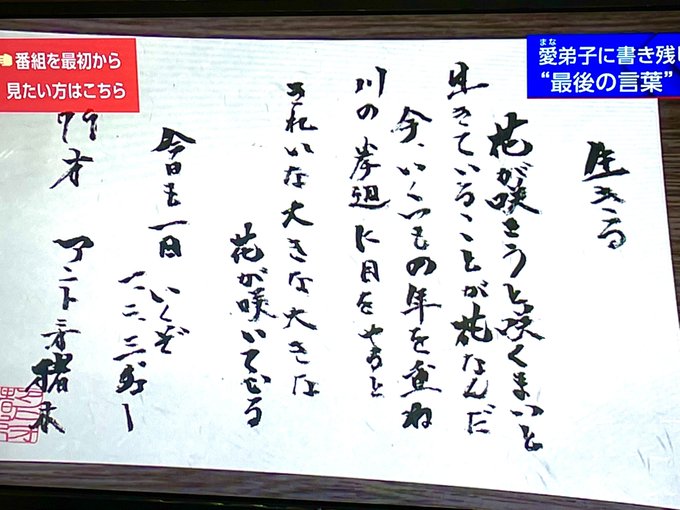 番組を最初から
見たい方はこちら
まな
愛弟子に書き残し
“最後の言葉”
生きる
花が咲こうと咲くまいと
生きていることが花なんだ
今、いくつもの年を重ね
川の岸辺に目をやると
きれいな大きな大きな
花が咲いている
今日も一日いくぞ
一、二、三、ダー
アントニオ猪木